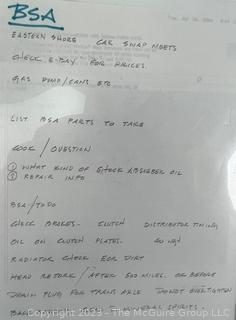 BSA
EASTERN SHORE CAR SWAP MEETS
CHECK E-BAY FOR PRICES.
GAS PUMP/CANS ETC
LIST BSA PARTS TO TAKE
LOOK / QUESTION
① WHAT KIND OF SHOCK ABSORBER OIL
② REPAIR INFO
BSA/TO DO
CHECK BRAKES - CLUTCH DISTRIBUTOR TIMING
OIL ON CLUTCH PLATES.
RADIATOR CHECK FOR DIRT
HEAD RETORK / AFTER 500 MILES. OR BEFORE
DRAIN PLUG FOR TRANS AXLE DO NOT OVERTIGHTEN
MINERAL SPIRITS.
Copyright 2023 - The McGuire Group LLC